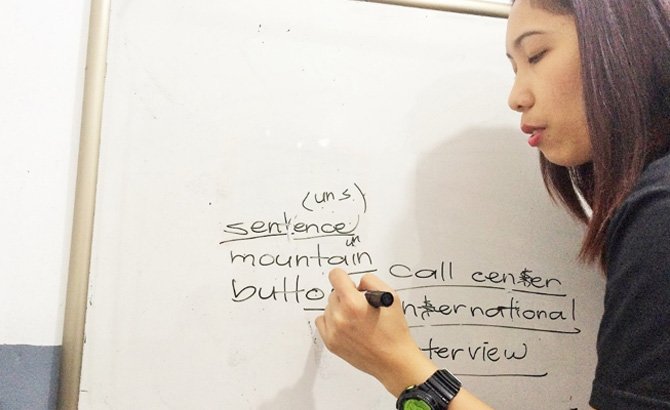 (uns)
sentence
un
mountain
butto
call center
nternational
terview